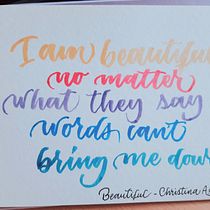 I am beautiful
no matter
what they say
words cant
bring me down
Beautiful - Christina A